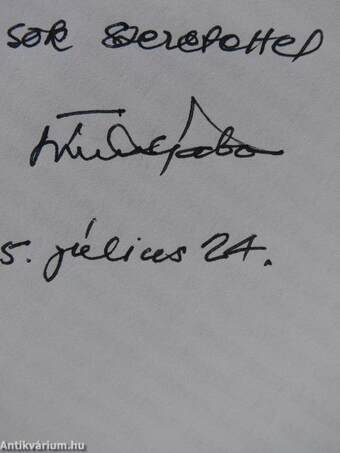 sok szeretettel
5. július 24.
Antikvárium.hu